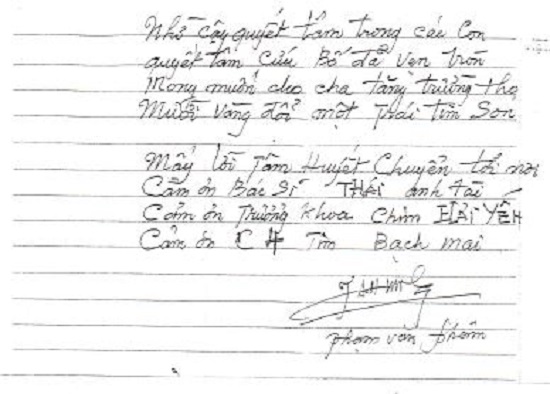 Nhờ cậy quyết tâm trong các Con
quyết tâm Cứu Bố đã vẹn tròn
Mong muốn cho cha tăng trưởng thọ
Mười vàng đổi một trái tim Son
Mấy lời Tâm Huyết Chuyển tới nơi
Cảm ơn Bác Sĩ THÁI anh tài
Cảm ơn Trưởng Khoa Chim HẢI YẾN
Cảm ơn CH Tim Bạch mai
phạm văn